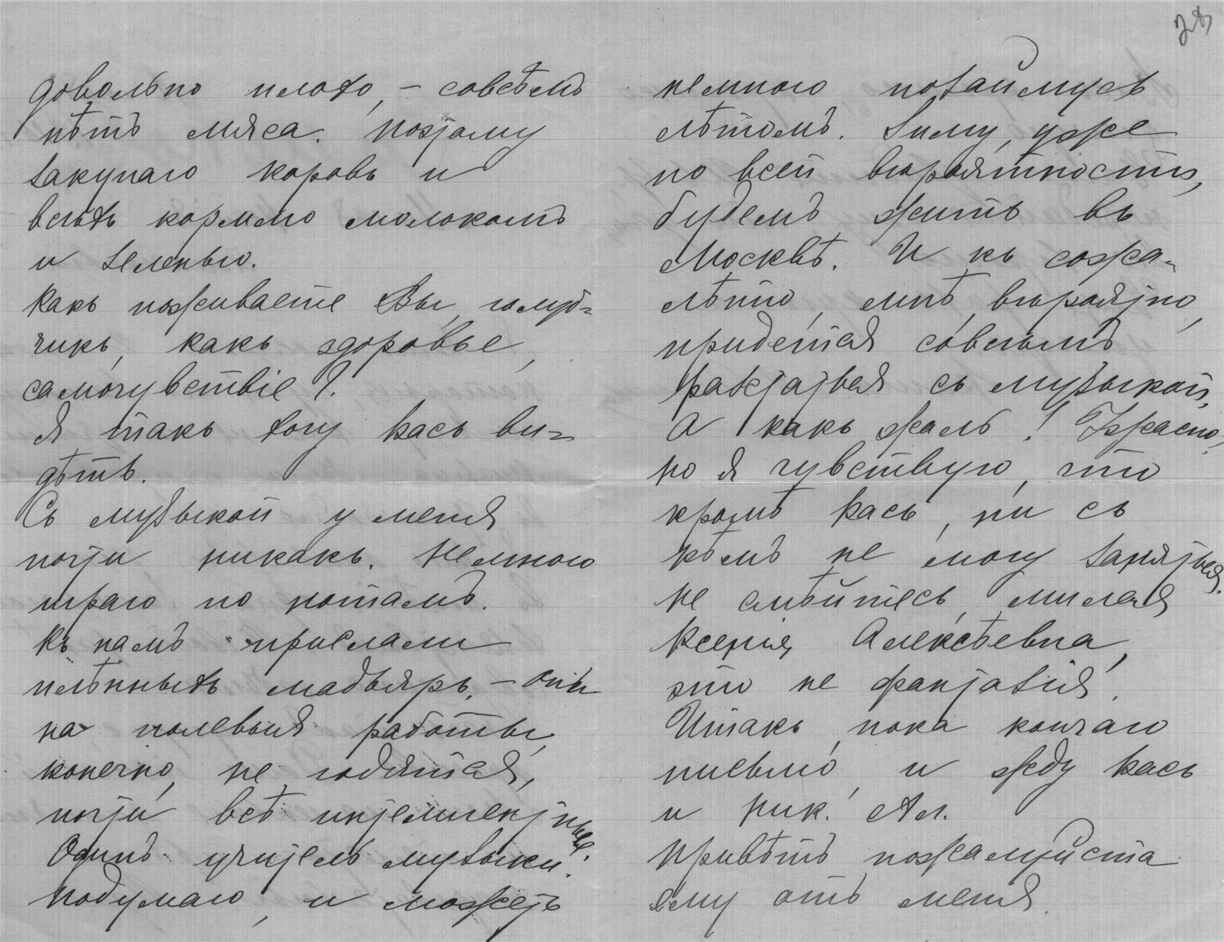 довольно плохо, – совсѣмъ
нѣтъ мяса. Поэтому
закупаю коровъ и
всѣхъ кормлю молокомъ
и зеленью.
Какъ поживаете Вы, голуб=
чикъ, какъ здоровье,
самочувствіе?
Я такъ хочу Васъ ви=
дѣть.
Съ музыкой у меня
почти никакъ. Немного
играю по нотамъ.
Къ намъ прислали
плѣнныхъ мадьяръ, – они
на полевыя работы,
конечно, не годятся,
почти всѣ интеллигентные.
Одинъ учитель музыки.
Подумаю, и можетъ
28
немного позаймусь
лѣтомъ. Зиму, уже
по всей вѣроятности,
будемъ жить въ
Москвѣ. И къ сожа=
лѣнію, мнѣ, вѣроятно,
придется совсѣмъ
разстаться съ музыкой,
А какъ жаль! Ужасно,
но я чувствую, что
кромѣ Васъ, ни съ
кѣмъ не могу заняться.
Не смѣйтесь, милая
Ксенія Алексѣевна,
это не фантазія.
Итакъ, пока кончаю
письмо, и жду Васъ
и Ник. Ал.
Привѣтъ пожалуйста
ему отъ меня.